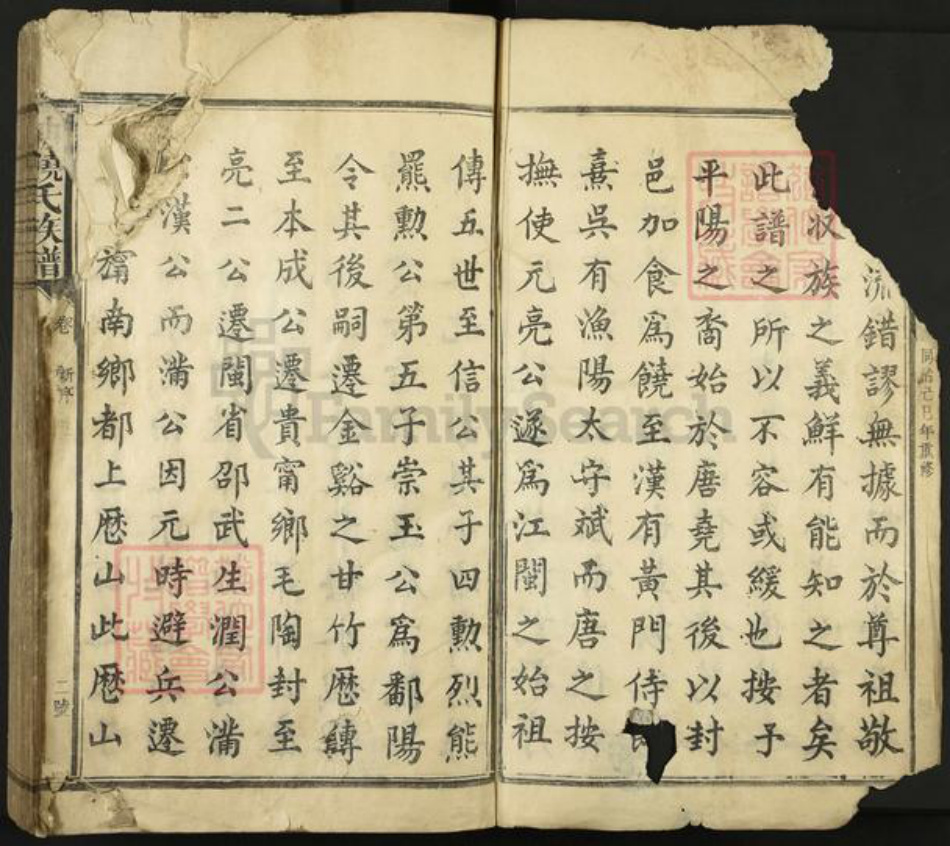 流錯謬無據而於尊祖敬
收族之義鮮有能知之者矣
此譜之所以不容或緩也按予
平陽之裔始於唐堯其後以封
邑加食為饒至漢有黃門侍
熹吳有漁陽太守斌而唐之按
撫使元亮公遂為江閩之始祖
傳五世至信公其子四勳烈熊
羆勲公第五子崇玉公為鄱陽
令其後嗣遷金谿之甘竹厯轉
至本成公遷貴甯鄉毛陶封至
亮二公遷閩省邵武生潤公滿
漢公而滿公因元時避兵遷
甯南鄉都上厯山此厯山
饒氏族譜
卷 新序
二號
同治己巳年重修
FamilySearch